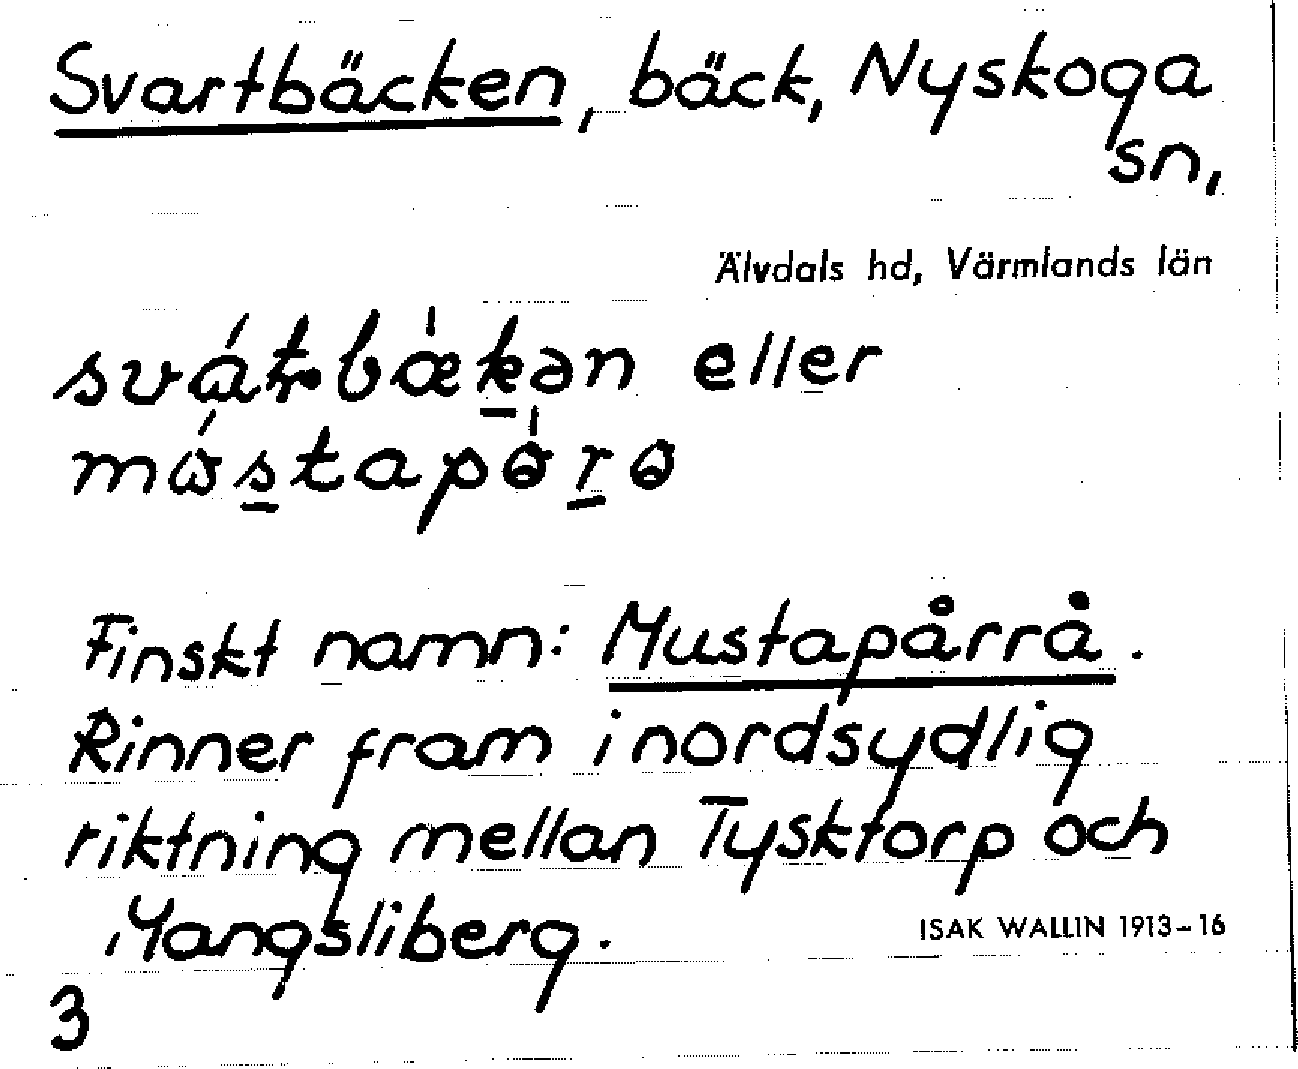 Svartbäcken, bäck, Nyskoga
sn,
Älvdals hd, Värmlands län
eller
Finskt namn: Mustapårrå.
Rinner fram i nordsydlig
riktning mellan Tysktorp och
Mangsliberg.
ISAK WALLIN 1913-16
3